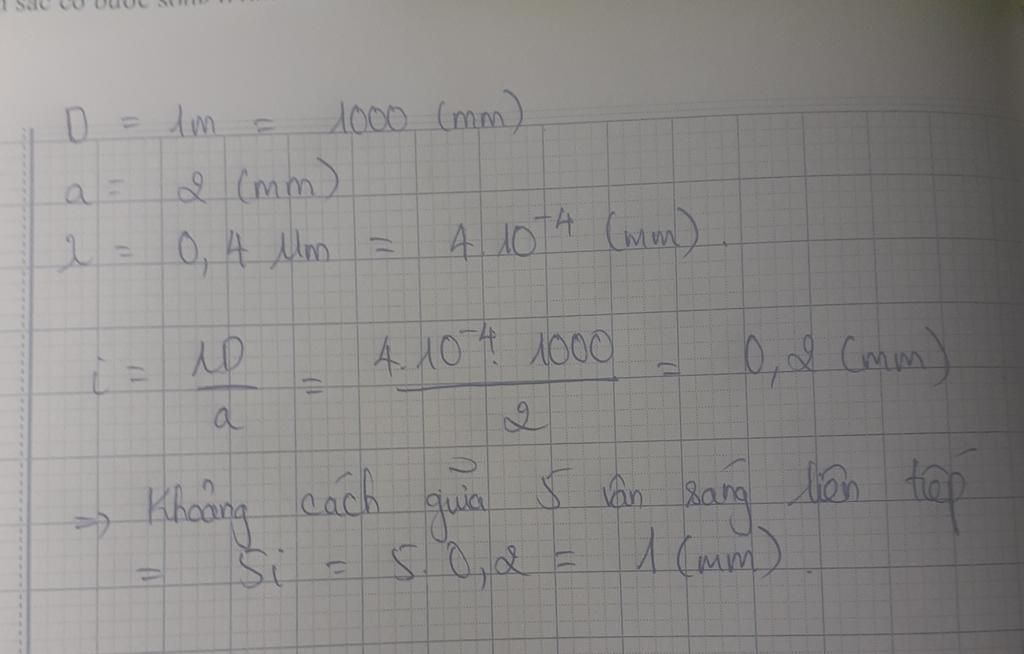 sắc có bước sóng
D = 1m = 1000 (mm)
a = 2 (mm)
λ = 0,4 μm = 4.10⁻⁴ (mm).
i = λD / a = 4.10⁻⁴. 1000 / 2 = 0,2 (mm)
=> Khoảng cách giữa 5 vân sáng liên tiếp
= 5i = 5. 0,2 = 1 (mm).